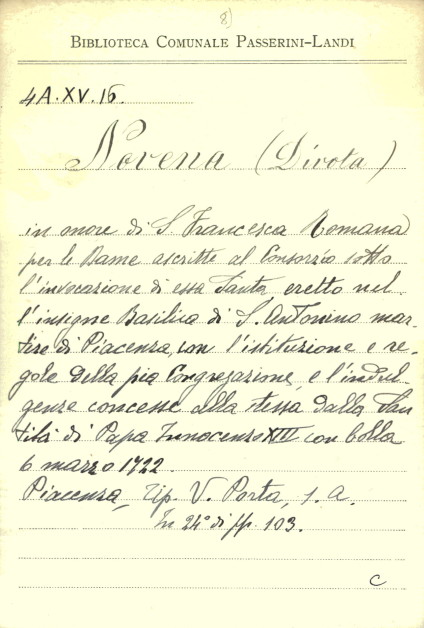 8)
BIBLIOTECA COMUNALE PASSERINI-LANDI
4A.XV.16.
Novena (Divota)
in onore di S. Francesca Romana
per le Dame ascritte al Consorzio sotto
l'invocazione di essa Santa eretto nel-
l'insigne Basilica di S. Antonino mar-
tire di Piacenza, con l'istituzione e re-
gole della pia Congregazione, e l'indul-
genze concesse alla stessa dalla San-
tità di Papa Innocenzo XIII con bolla
6 marzo 1722.
Piacenza, Tip. V. Porta, s. a.
In 24° di pp. 103.
C